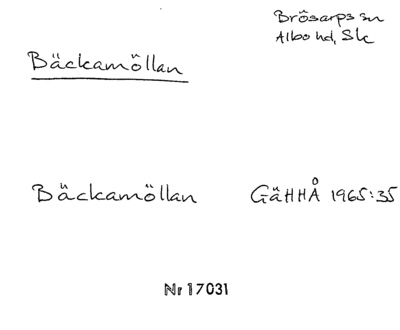 Brösarps sn
Albo hd, Sk
Bäckamöllan
Bäckamöllan GÄHHÅ 1965:35
Nr 17031